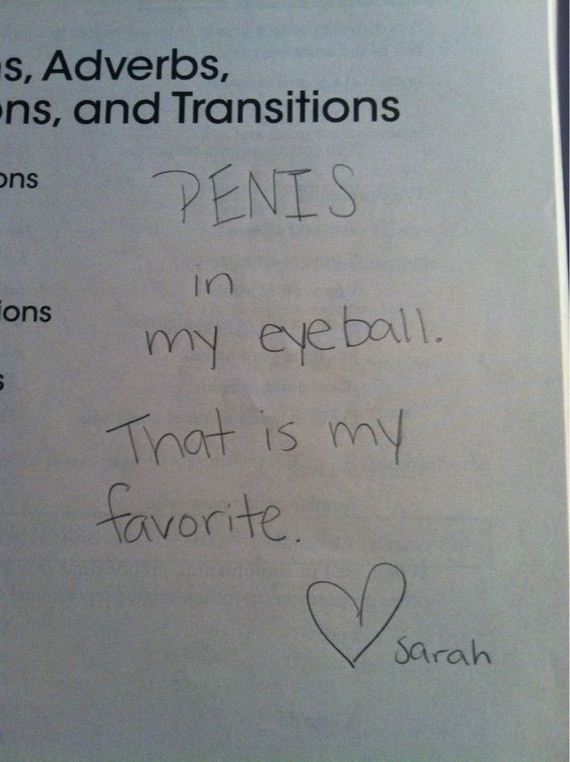 s, Adverbs,
ons, and Transitions
ons
PENIS
in
ions
my eyeball.
s
That is my
favorite.
sarah